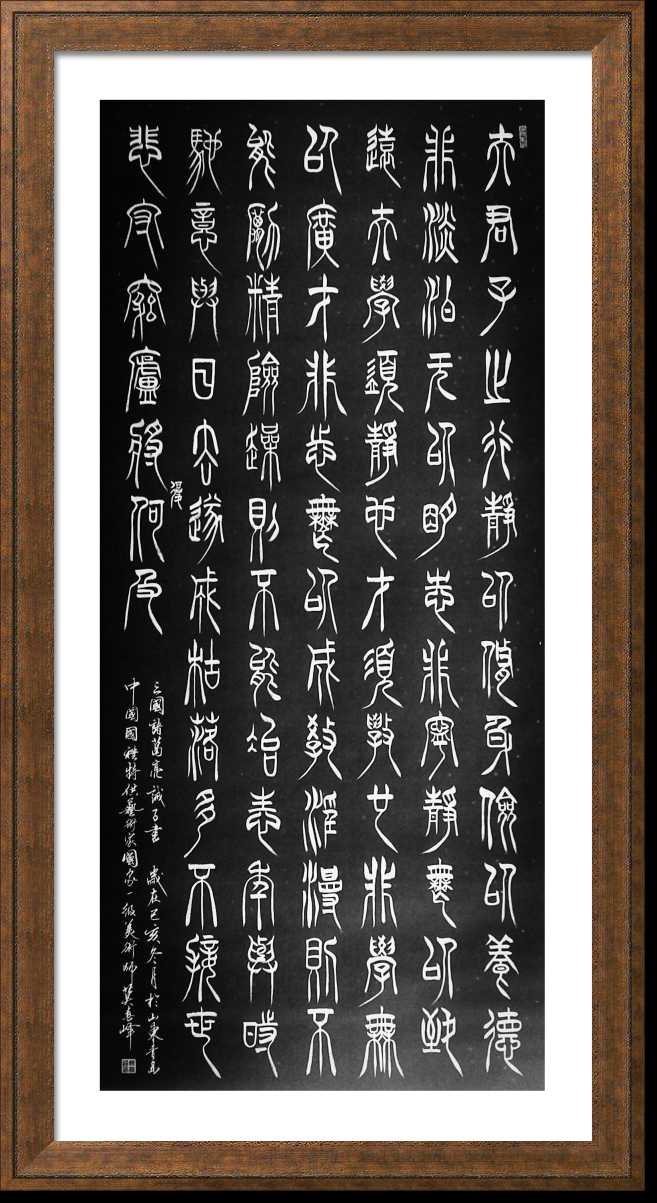 夫君子之行靜以修身儉以養德
非淡泊无以明志非寧靜無以致
遠夫學須靜也才須學也非學無
以廣才非志無以成教淫漫則不
能勵精險躁則不能治志年與時
馳意與日去遂成枯落多不接世
悲守窮廬將何及
復
三國諸葛亮誡子書 歲在己亥冬月於山東青島
中國國禮特供藝術家國家一級美術師